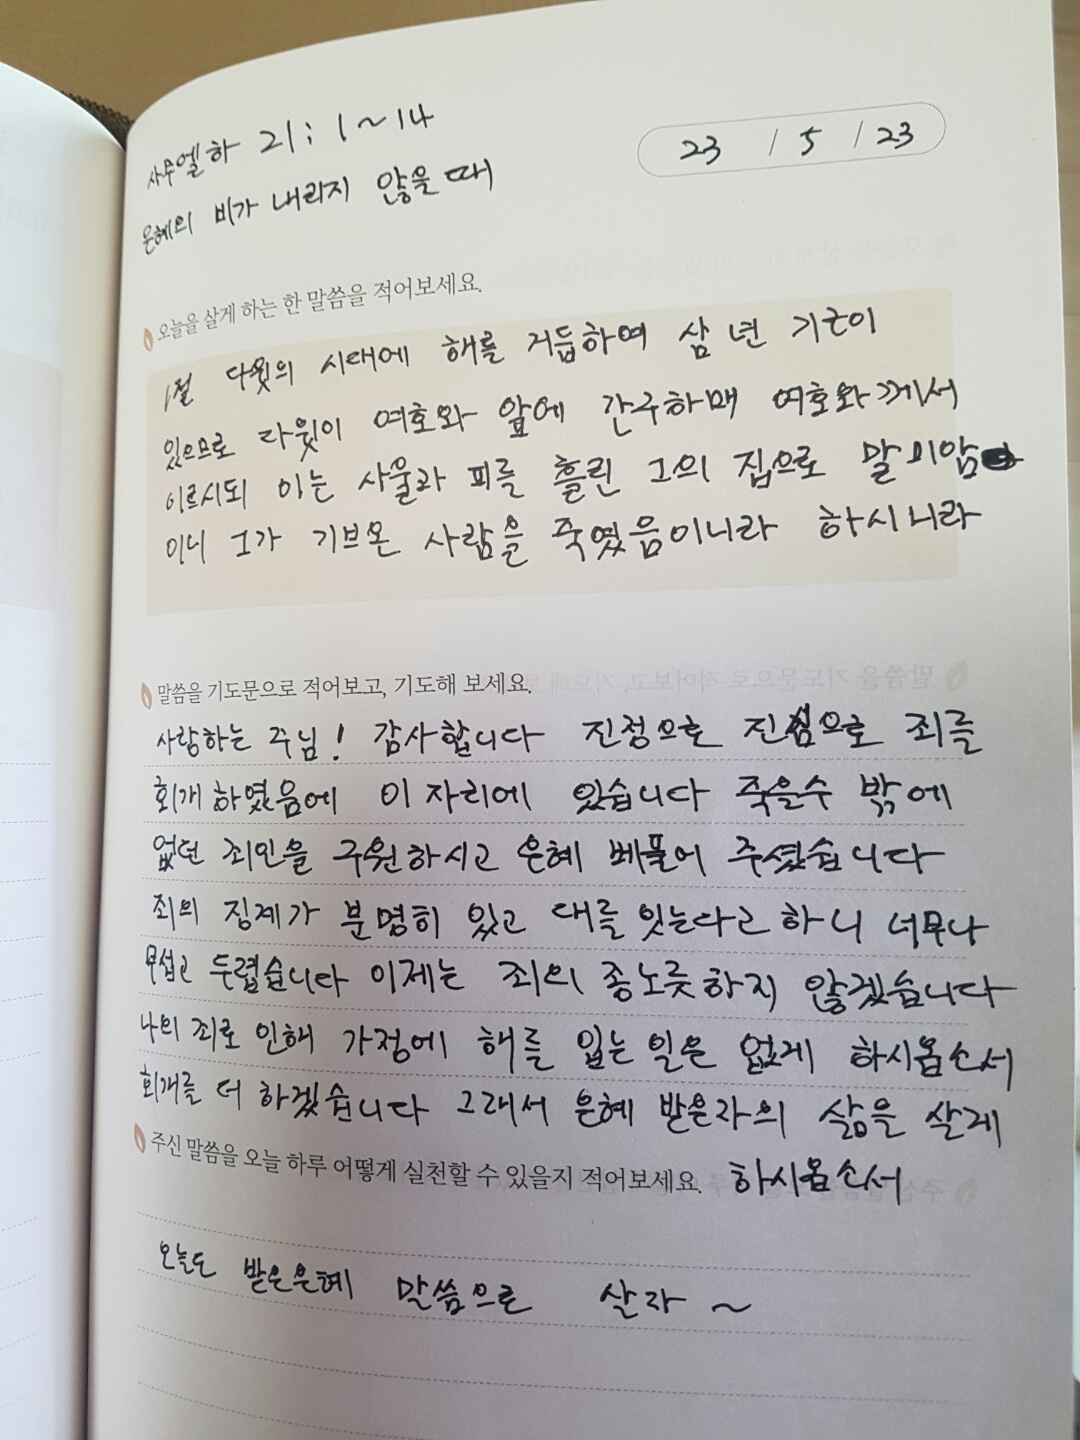 사무엘하 21 : 1 ~ 14
23 / 5 / 23
은혜의 비가 내리지 않을 때
오늘을 살게 하는 한 말씀을 적어보세요.
1절 다윗의 시대에 해를 거듭하여 삼 년 기근이
있으므로 다윗이 여호와 앞에 간구하매 여호와께서
이르시되 이는 사울과 피를 흘린 그의 집으로 말미암
이니 그가 기브온 사람을 죽였음이니라 하시니라
말씀을 기도문으로 적어보고, 기도해 보세요.
사랑하는 주님! 감사합니다 진정으로 진심으로 죄를
회개 하였음에 이 자리에 있습니다 죽을수 밖에
없던 죄인을 구원하시고 은혜 베풀어 주셨습니다
죄의 징계가 분명히 있고 대를 잇는다고 하니 너무나
무섭고 두렵습니다 이제는 죄의 종노릇하지 않겠습니다
나의 죄로 인해 가정에 해를 입는 일은 없게 하시옵소서
회개를 더 하겠습니다 그래서 은혜 받은자의 삶을 살게
주신 말씀을 오늘 하루 어떻게 실천할 수 있을지 적어보세요. 하시옵소서
오늘도 받은은혜 말씀으로 살자 ~